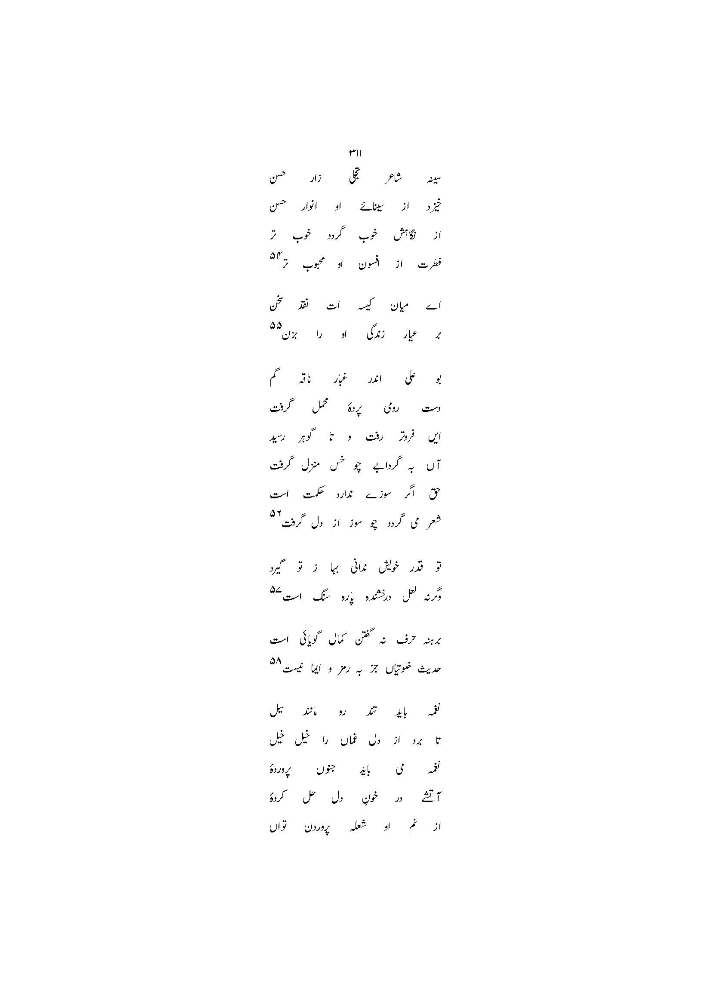 ۳۱۱
سینہ شاعر تجلی زار حسن
خیزد از سینائے او انوار حسن
از نگاہش خوب گردد خوب تر
فطرت از افسون او محبوب تر۵۴
اے میان کیسہ ات نقد سخن
بر عیار زندگی او را بزن۵۵
بو علی اندر غبار ناقہ گم
دست رومی پردۂ محمل گرفت
ایں فروتر رفت و تا گوہر رسید
آں بہ گردابے چو خس منزل گرفت
حق اگر سوزے ندارد حکمت است
شعر می گردد چو سوز از دل گرفت۵۶
تو قدر خویش ندانی بہا ز تو گیرد
وگرنہ لعل درخشندہ پارہ سنگ است۵۷
برہنہ حرف نہ گفتن کمال گویائی است
حدیث خلوتیاں جز بہ رمز و ایما نیست۵۸
نغمہ باید تند رو مانند سیل
تا برد از دل غماں را خیل خیل
نغمہ می باید جنوں پروردۂ
آتشے در خونِ دل حل کردۂ
از نم او شعلہ پروردن تواں